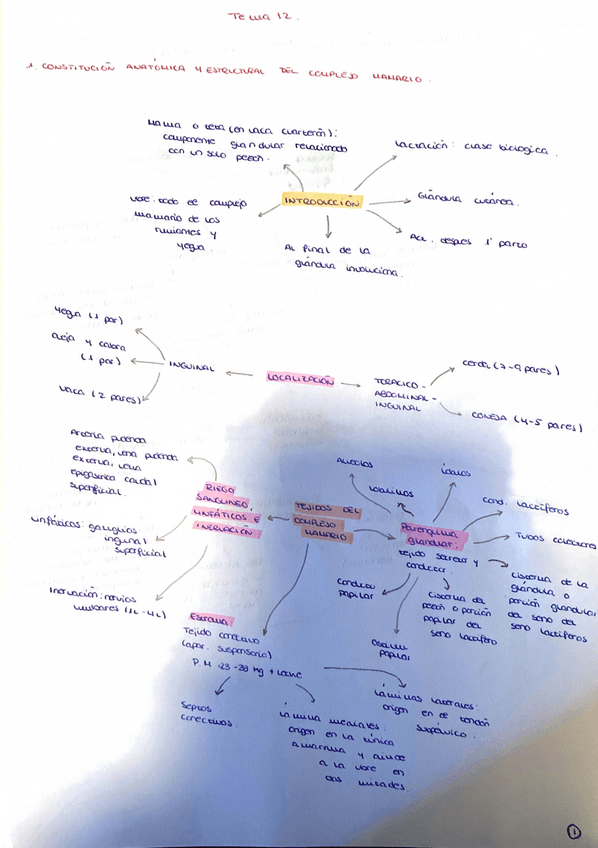 Tema 12.
1. CONSTITUCIÓN ANATÓMICA Y ESTRUCTURAL DEL COMPLEJO MAMARIO.
Mama o teta (en vaca cuarterón):
componente glandular relacionado
con un solo pezón.
Lactación: clase biológica.
INTRODUCCIÓN
Glándula cutánea.
Ubre: todo el complejo
mamario de los
rumiantes y
yegua.
Act. despes 1º parto
Al final de la
glándula involuciona.
Yegua (1 par)
oveja y cabra
(1 par)
INGUINAL
vaca (2 pares)
LOCALIZACIÓN
TORACICO-
ABDOMINAL-
INGUINAL
cerda (7-9 pares)
CONEJA (4-5 pares)
Arteria pudenda
externa, vena pudenda
externa, vena
epigástrica caudal
superficial.
RIEGO
SANGUINEO,
LINFÁTICOS E
INERVACIÓN
linfáticos: ganglios
inguinal
superficial
Inervación: nervios
lumbares (L2-L4)
TEJIDOS DEL
COMPLEJO
MAMARIO
Alveolos
lobulillos
lóbulos
Cond. lactíferos
Tubos colectores
Parénquima
glandular.
tejido secretor y
conductor.
cisterna de la
glándula o
porción glandular
del seno del
seno lactíferos
cisterna del
pezón o porción
papilar del
seno lactífero
Conducto
papilar
Ostium
papilar
Estroma
Tejido conectivo
(apar. suspensorio)
P.M. 23-28 Kg + Leche
Septos
conectivos.
Lámina mediales:
origen en la túnica
amarilla y divide
a la ubre en
dos mitades
Láminas laterales:
origen en el tendón
subpúbico.
1